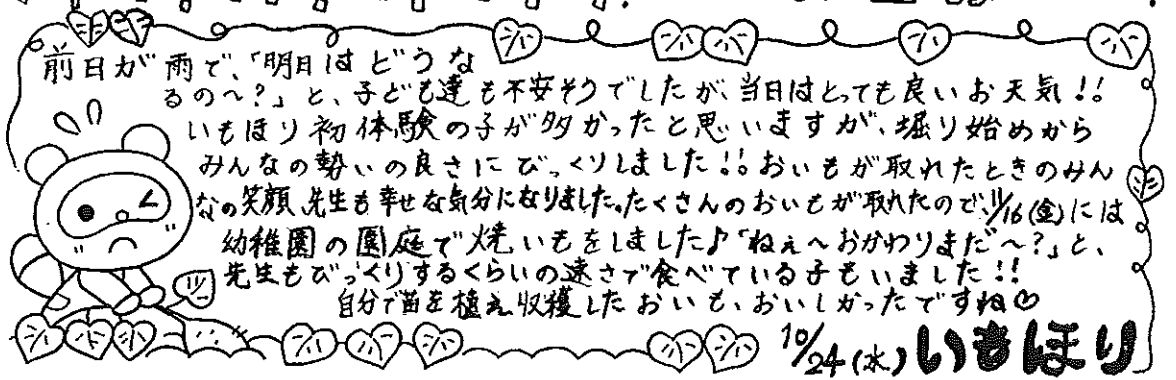 前日が雨で、「明日はどうな
るの〜?」と、子ども達も不安そうでしたが、当日はとっても良いお天気!!
いもほり初体験の子が多かったと思いますが、堀り始めから
みんなの勢いの良さにびっくりしました!!おいもが取れたときのみん
なの笑顔、先生も幸せな気分になりました。たくさんのおいもが取れたので、11/16(金)には
幼稚園の園庭で焼いもをしました♪「ねぇ〜おかわりまだ〜?」と、
先生もびっくりするくらいの速さで食べている子もいました!!
自分で苗を植え、収穫したおいも、おいしかったですね♡
10/24(水)いもほり